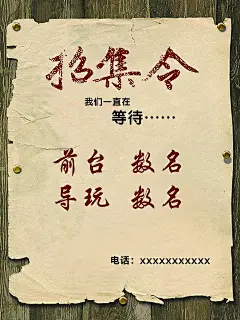 招集令
我们一直在
等待……
前台 数名
导玩 数名
电话：xxxxxxxxxxx